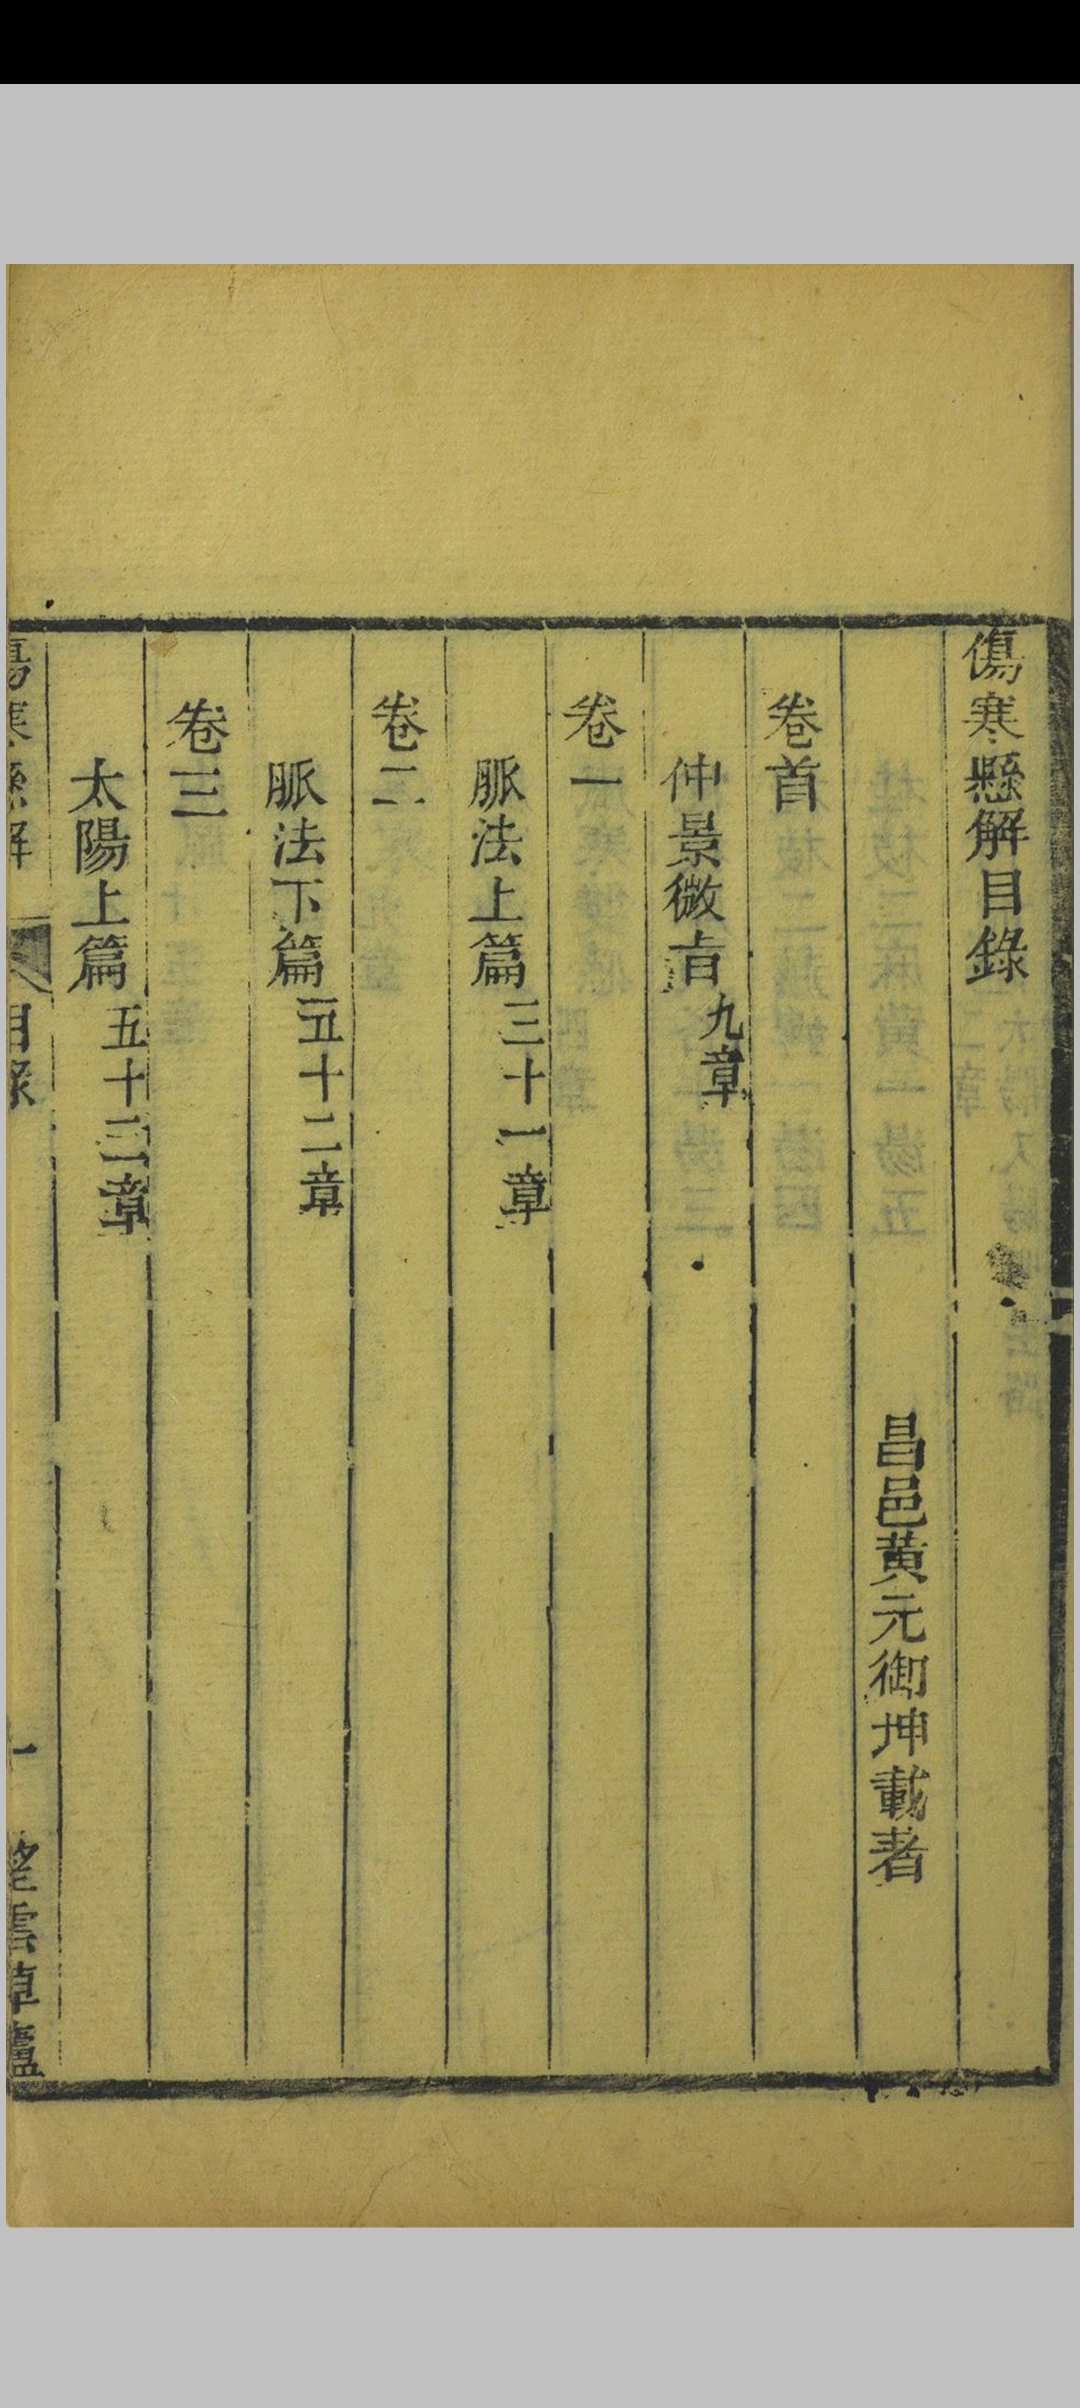 傷寒懸解目錄
昌邑黃元御坤載著
卷首
仲景微旨九章
卷一
脈法上篇三十一章
卷二
脈法下篇五十二章
卷三
太陽上篇五十三章
傷寒懸解 目錄 一 草廬